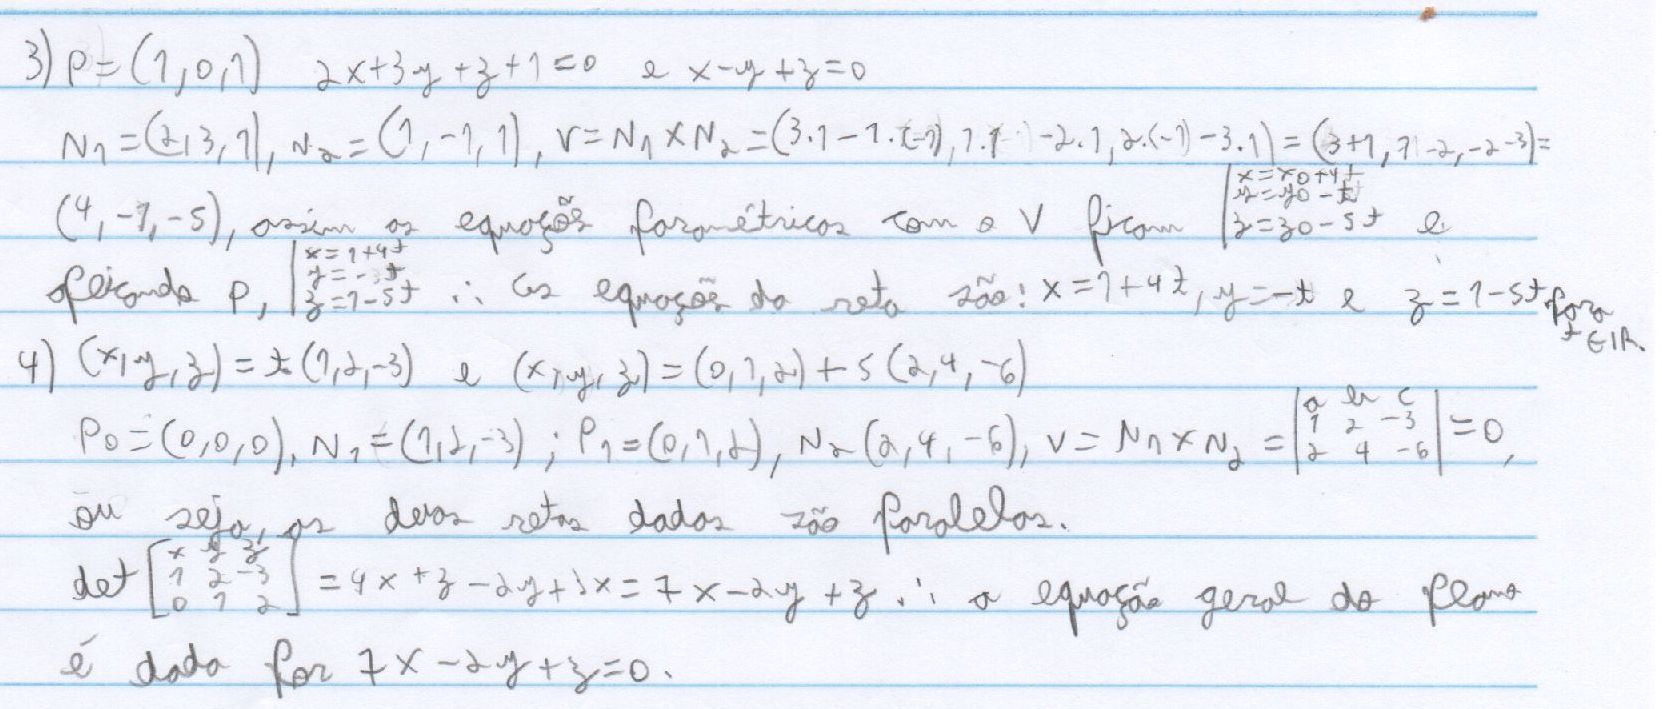 3) P=(1,0,1) 2x+3y+z+1=0 e x-y+z=0
N1=(2,3,1), N2=(1,-1,1), V=N1×N2=(3.1-1.(-1),1.1-2.1,2.(-1)-3.1)=(3+1,1-2,-2-3)=
(4,-1,-5), assim as equações paramétricas com o V ficam |x=x0+4t
y=y0-t
z=z0-5t e
aplicando P, |x=1+4t
y=-t
z=1-5t ∴ as equações da reta são: x=1+4t, y=-t e z=1-5t para
t∈IR.
4) (x,y,z)=t(1,2,-3) e (x,y,z)=(0,1,2)+s(2,4,-6)
P0=(0,0,0), N1=(1,2,-3); P1=(0,1,2), N2(2,4,-6), V=N1×N2=|a b c
1 2 -3
2 4 -6|=0,
ou seja, as duas retas dadas são paralelas.
det[x y z
1 2 -3
0 1 2]=4x+z-2y+3x=7x-2y+z ∴ a equação geral do plano
é dada por 7x-2y+z=0.